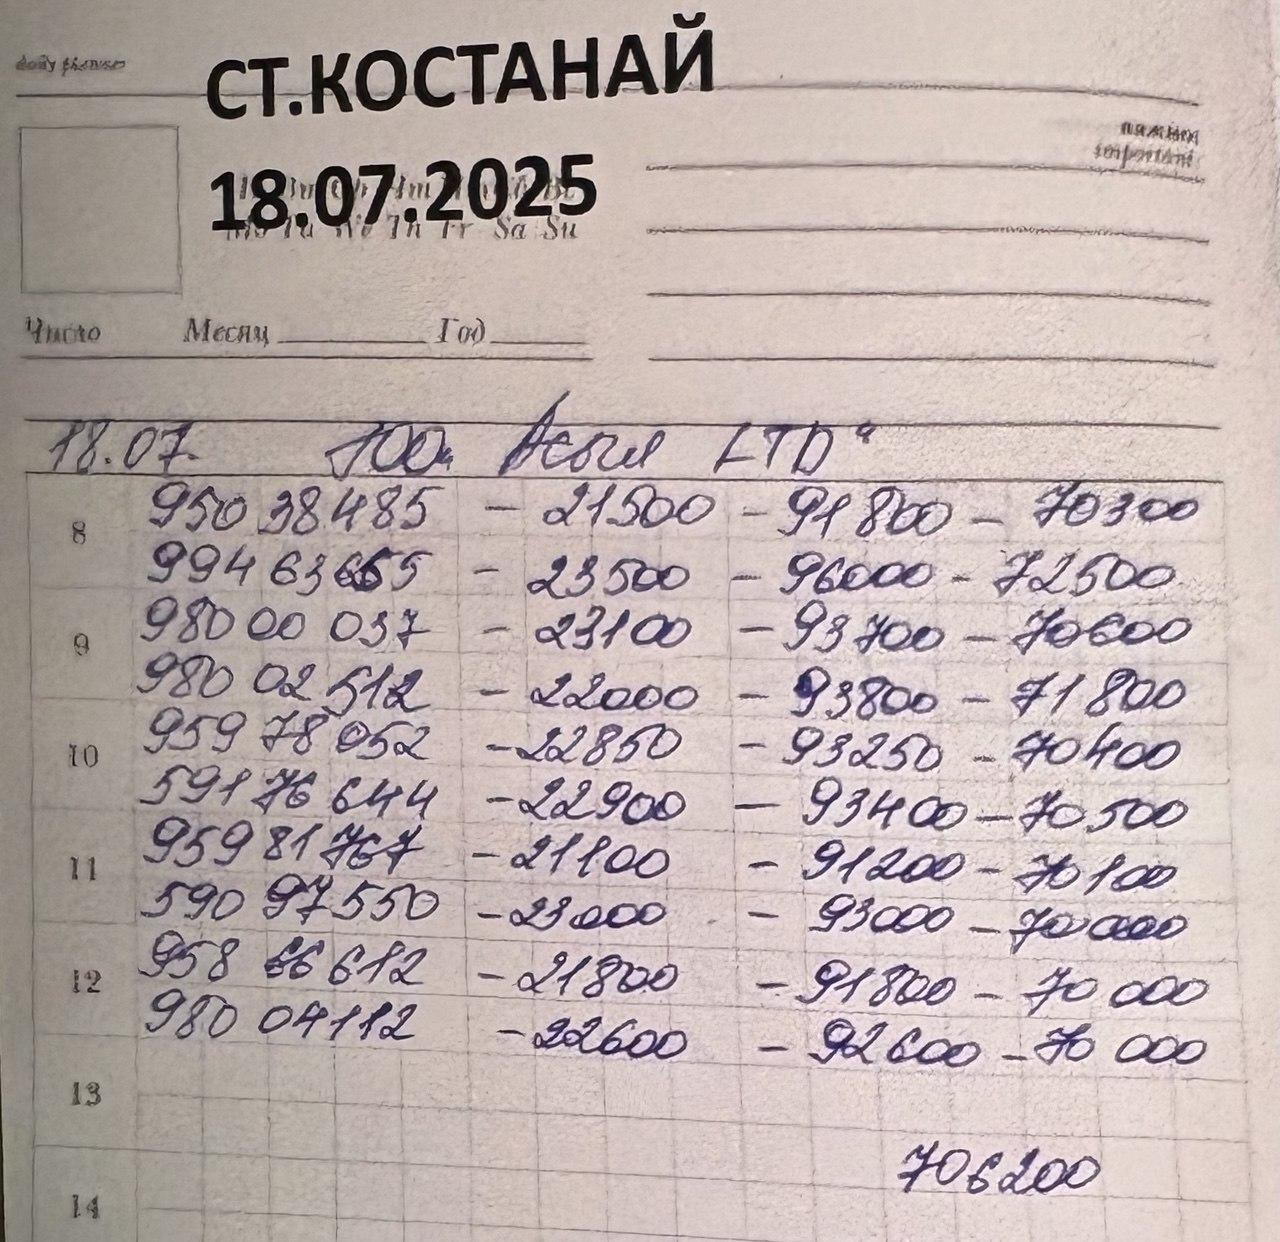 daily planner
СТ.КОСТАНАЙ
важно
important
18.07.2025
Mo Tu We Th Fr Sa Su
Число Месяц Год
18.07. ТОО „Асыл LTD“
8 950 38 485 - 21500 - 91800 - 70300
994 63 665 - 23500 - 96000 - 72500
9 980 00 037 - 23100 - 93700 - 70600
980 02 512 - 22000 - 93800 - 71800
10 959 78 052 - 22850 - 93250 - 70400
591 76 644 - 22900 - 93400 - 70500
11 959 81 767 - 21100 - 91200 - 70100
590 97 550 - 23000 - 93000 - 70000
12 958 66 612 - 21800 - 91800 - 70 000
980 04112 - 22600 - 92600 - 70 000
13
706200
14